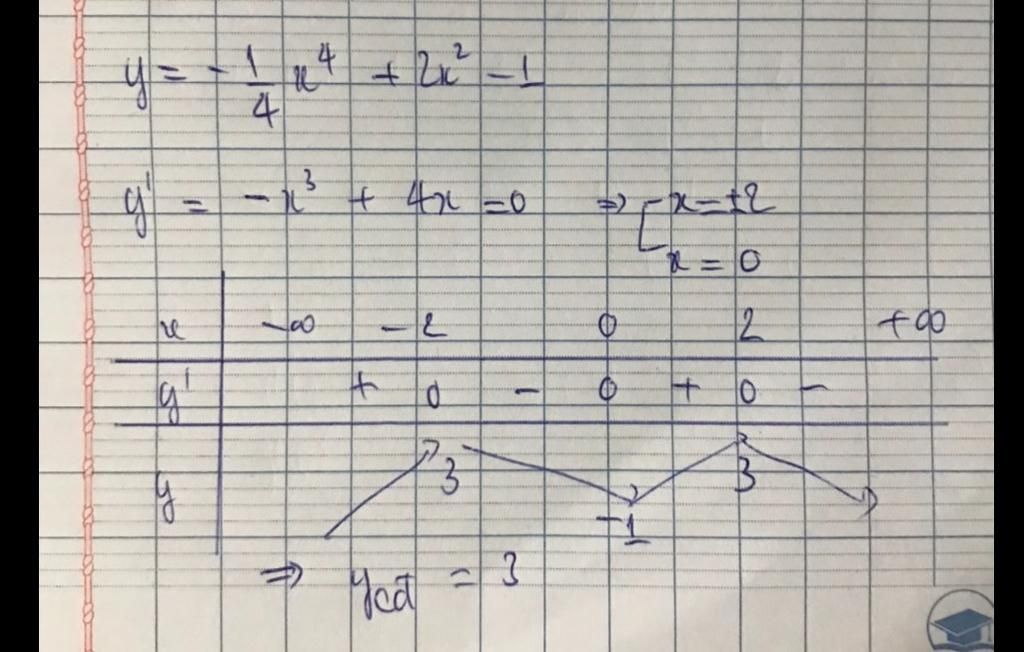 y = -1/4 x⁴ + 2x² - 1
y' = -x³ + 4x = 0 ⇒ [ x = ±2
x = 0
x -∞ -2 0 2 +∞
y' + 0 - 0 + 0 -
y 3 -1 3
⇒ ycđ = 3